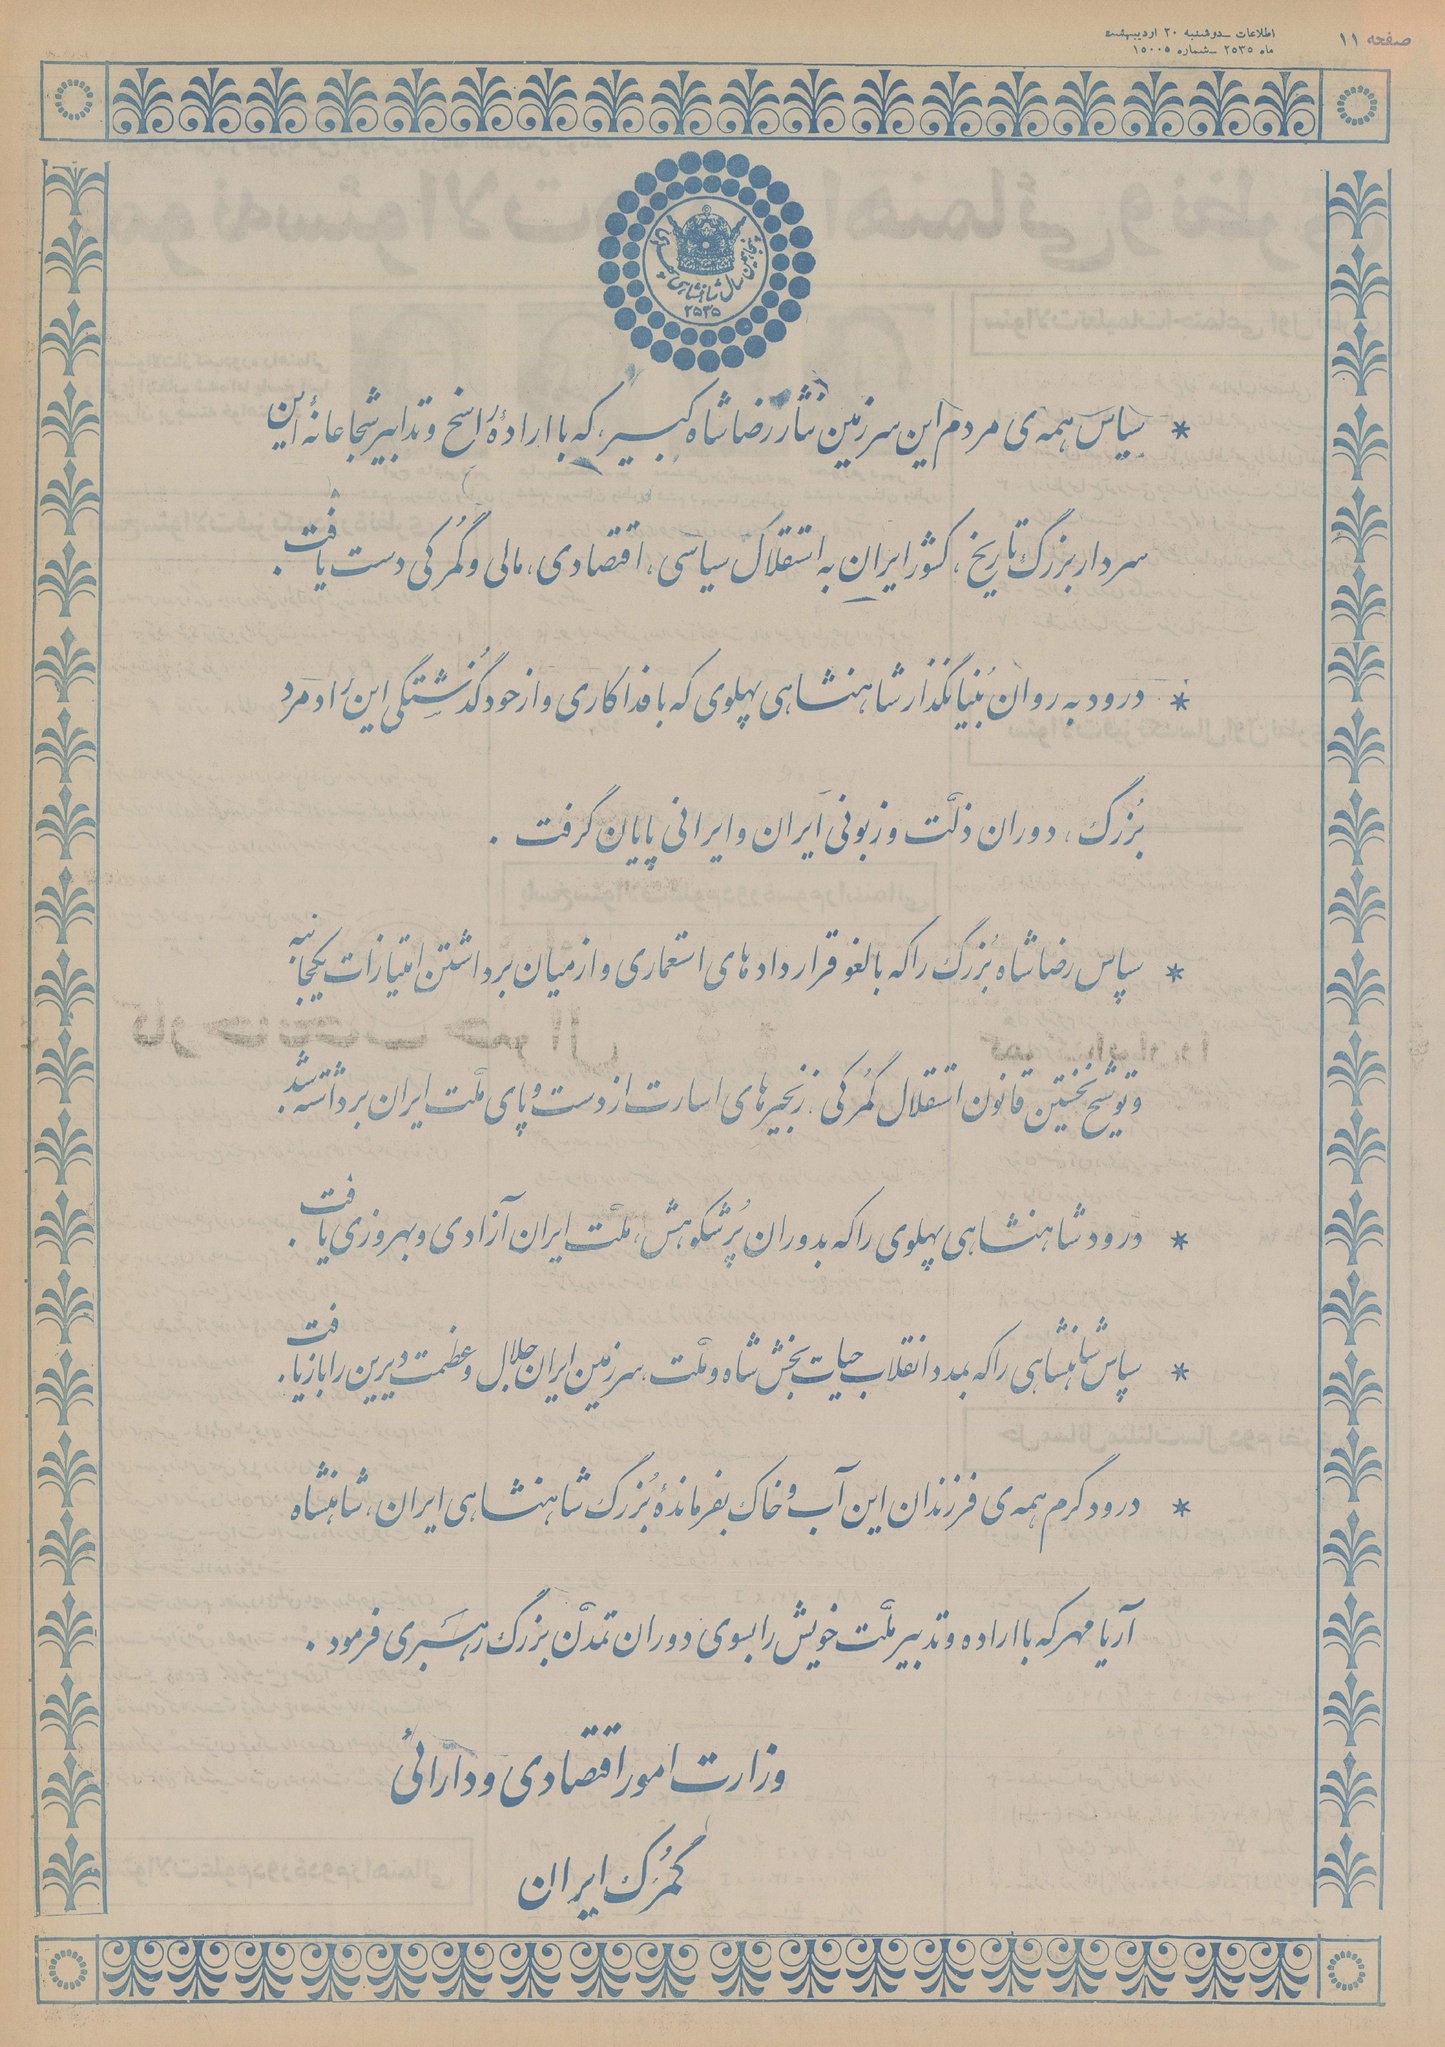 صفحه ۱۱
اطلاعات ــ دوشنبه ۲۰ اردیبهشت
ماه ۲۵۳۵ ــ شماره ۱۵۰۰۵
پنجاهمین سال شاهنشاهی پهلوی
۲۵۳۵
* سپاس همه‌ی مردم این سرزمین نثار رضا شاه کبیر، که با ارادهٔ راسخ و تدابیر شجاعانهٔ این
سردار بزرگ تاریخ، کشور ایران به استقلال سیاسی، اقتصادی، مالی و گمرکی دست یافت.
* درود به روان بُنیانگذار شاهنشاهی پهلوی که با فداکاری و از خود گذشتگی این راد مرد
بُزرگ، دوران ذلّت و زبونی ایران و ایرانی پایان گرفت.
* سپاس رضا شاه بُزرگ را که با لغو قراردادهای استعماری و از میان برداشتن امتیازات یکجانبه
و توشیح نخستین قانون استقلال گمرکی، زنجیرهای اسارت از دست و پای ملّت ایران برداشته شد.
* درود شاهنشاهی پهلوی را که بدوران پُرشکوهش، ملّت ایران آزادی و بهروزی یافت.
* سپاس شاهنشاهی را که بمدد انقلاب حیات بخش شاه و ملّت، سرزمین ایران جلال و عظمت دیرین را بازیافت.
* درود گرم همه‌ی فرزندان این آب و خاک بفرماندهٔ بُزرگ شاهنشاهی ایران، شاهنشاه
آریامهر که با اراده و تدبیر ملّت خویش را بسوی دوران تمدّن بزرگ رهبری فرمود.
وزارت امور اقتصادی و دارائی
گمرک ایران